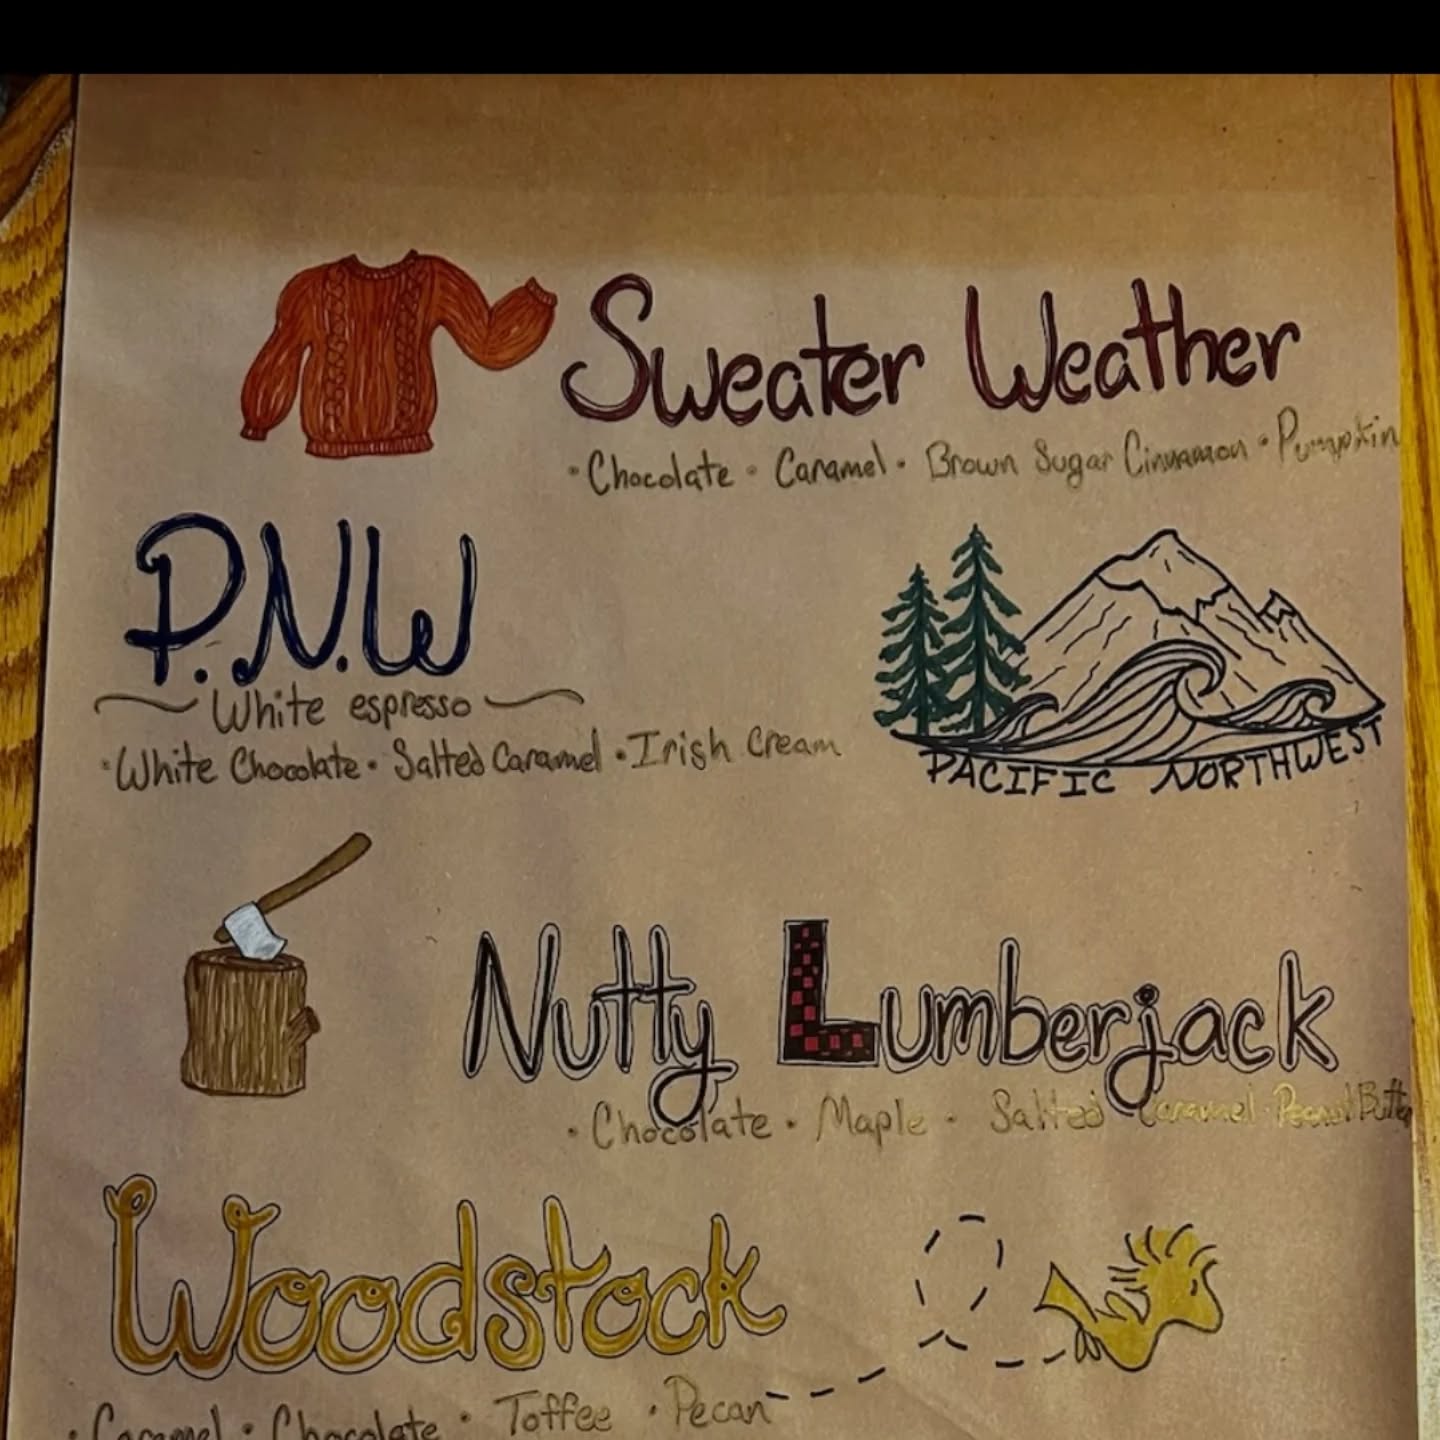 Sweater Weather
• Chocolate • Caramel • Brown Sugar Cinnamon • Pumpkin
P.N.W
White espresso
• White Chocolate • Salted Caramel • Irish Cream
PACIFIC NORTHWEST
Nutty Lumberjack
• Chocolate • Maple • Salted Caramel Peanut Butter
Woodstock
• Caramel • Chocolate • Toffee • Pecan